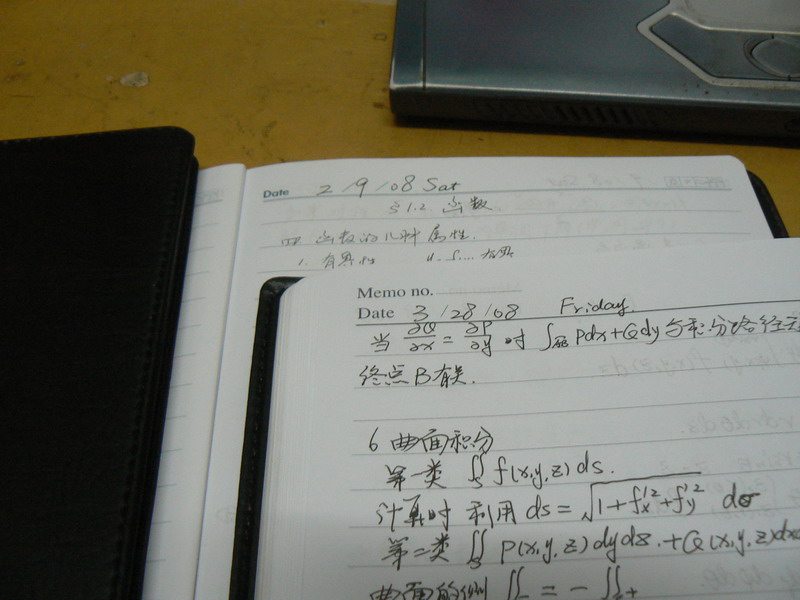 Date 2/9/08 Sat
§1.2 函数
四. 函数的几种属性.
1. 有界性
Memo no.
Date 3/28/08 Friday.
当 ∂Q/∂x = ∂P/∂y 时 ∫ Pdx+Qdy 与积分路径无
终点B有关.
6 曲面积分
第一类 ∬ f(x,y,z) ds.
计算时 利用 ds = √(1+f'x²+f'y²) dσ
第二类 ∬ P(x,y,z)dydz.+Q(x,y,z)dxd
曲面的侧 ∬ = -∬